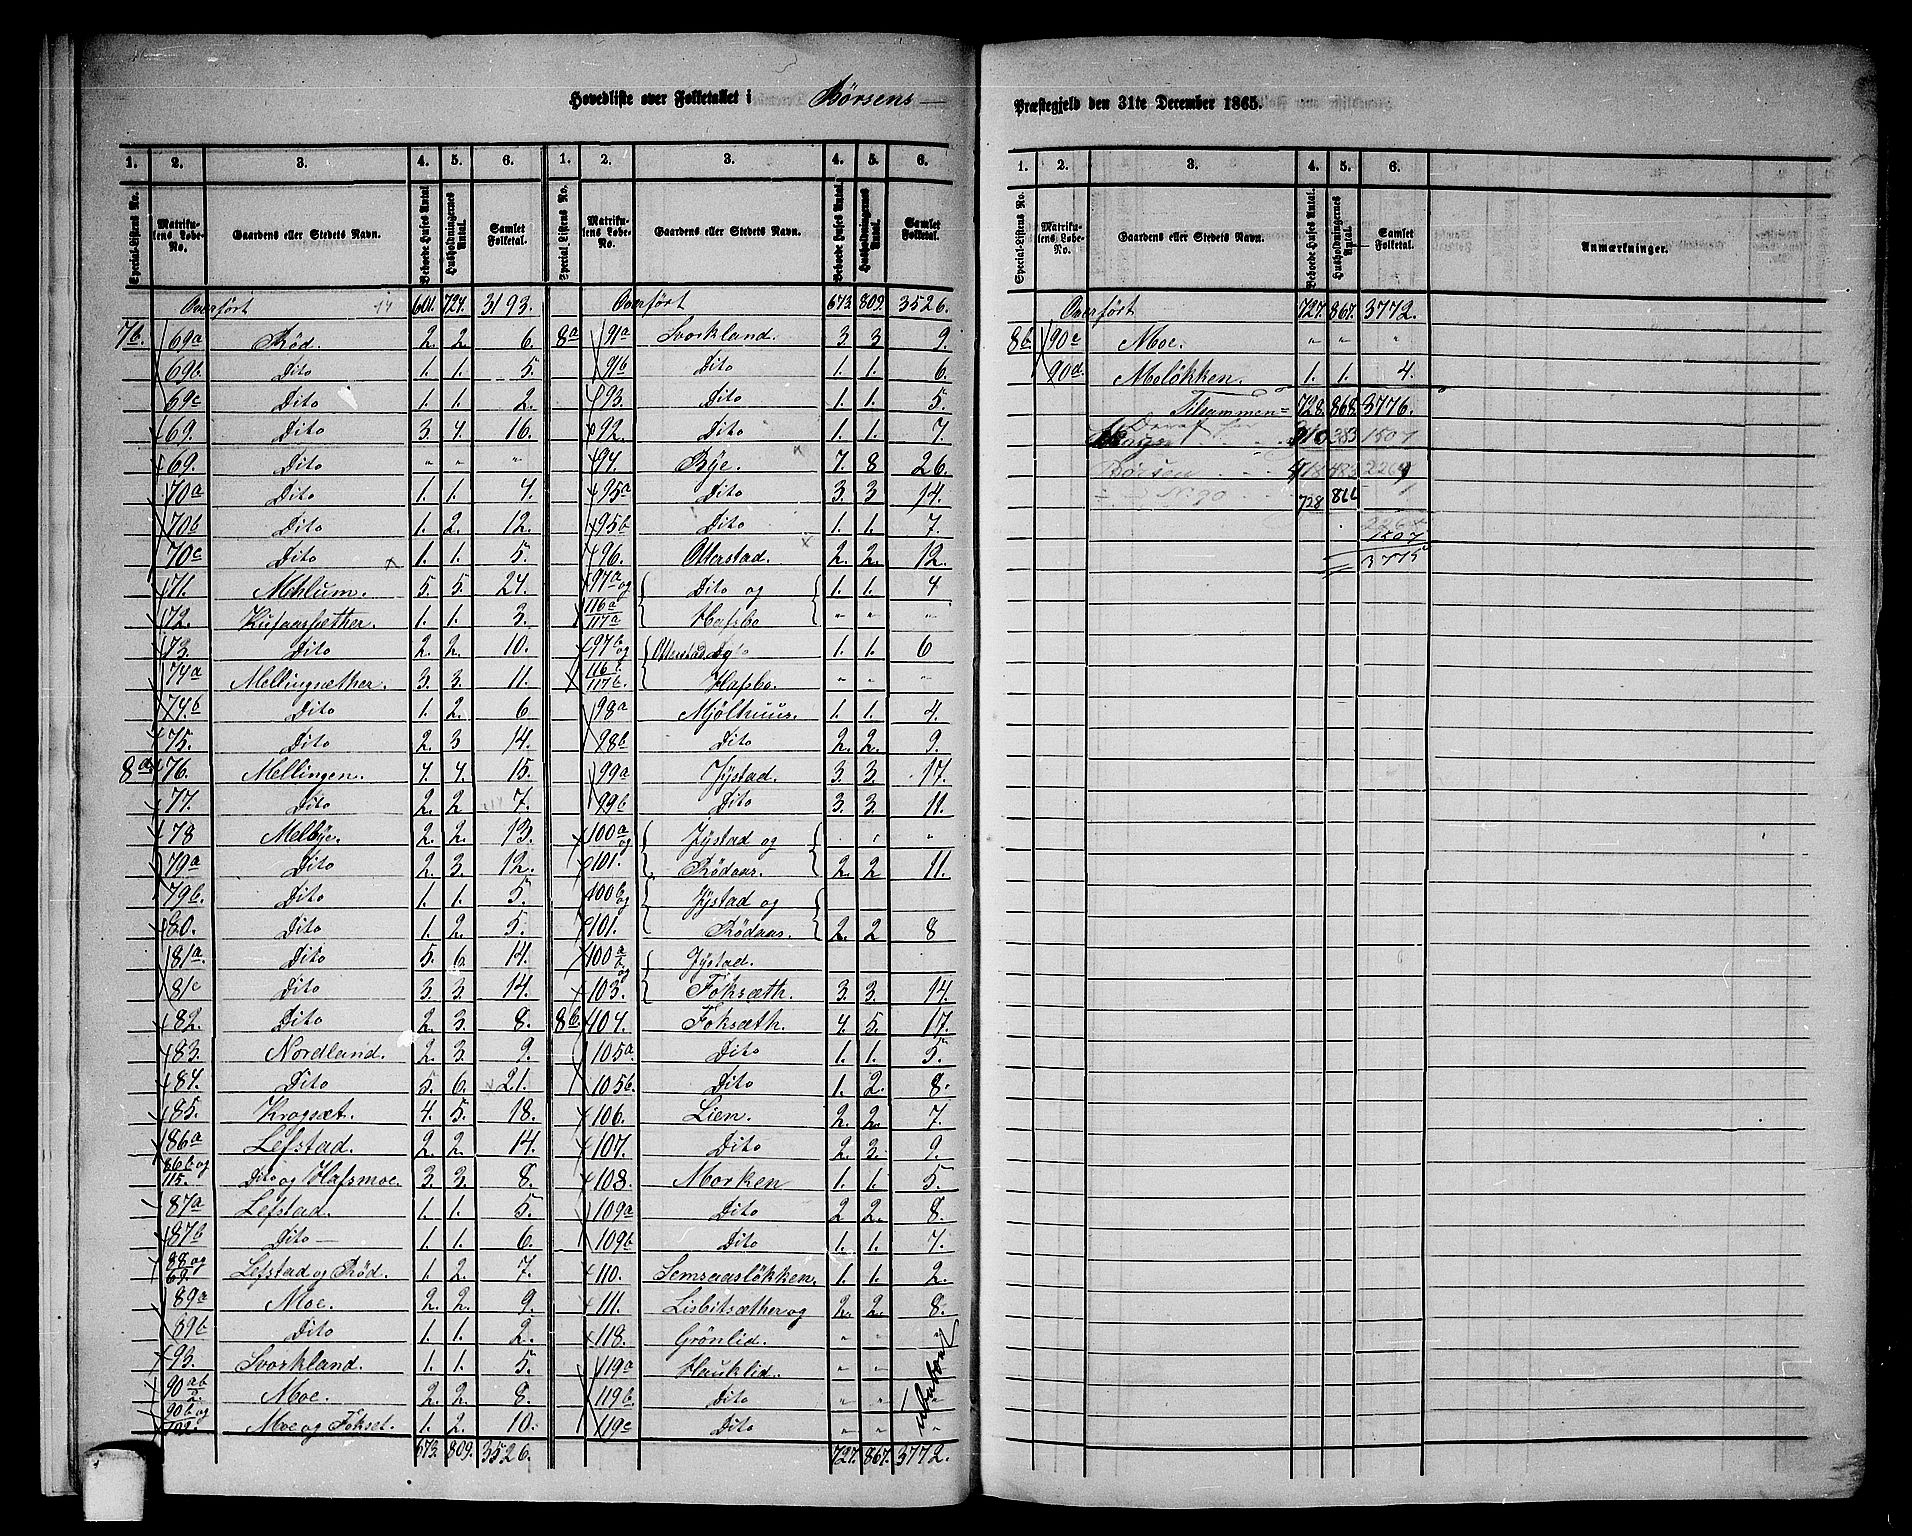 Hovedliste over Folketallet i Börsens
1. 2. 3. 4. 5. 6. 1. 2. 3. 4. 5. 6.
Special-Listens No. Matrikulens Løbe-No. Gaardens eller Stedets Navn. Beboede Huses Antal. Husholdningernes Antal. Samlet Folketal. Special-Listens No. Matrikulens Løbe-No. Gaardens eller Stedets Navn. Beboede Huses Antal. Husholdningernes Antal. Samlet Folketal.
Overført 601. 724. 3193.
7b. 69a Röd. 2. 2. 6.
69b. Dito 1. 1. 5.
69c Dito 1. 1. 2.
69. Dito 3. 4. 16.
69. Dito " " "
70a Dito 1. 1. 4.
70b Dito 1. 2. 12.
70c Dito 1. 1. 5.
71. Mehlum. 5. 5. 24.
72. Kusaassæther. 1. 1. 3.
73. Dito 2. 2. 10.
74a Mellingsæther. 3. 3. 11.
74b Dito 1. 2. 6
75. Dito 2. 3 14.
8a 76. Mellingen. 4. 4. 15.
77. Dito 2. 2 7.
78 Melbye. 2. 2. 13.
79a Dito 2. 3. 12.
79b. Dito 1. 1. 5.
80. Dito 1. 2. 5.
81a. Dito 5. 6. 14.
81c Dito 3. 3. 14.
82. Dito 2. 3. 8.
83. Nordland. 2. 3. 9.
84. Dito 5. 6. 21.
85. Krogsæt. 4. 5. 18.
86a Lefstad. 2. 2. 14.
86b og 115. Dito og Hafsmoe. 3. 3. 8.
87a Lefstad. 1. 1. 5.
87b Dito 1. 1. 6.
88 og 69. Lefstad og Röd. 1. 2. 7.
89a Moe. 2. 2. 9.
89b Dito 1. 1. 2.
93. Svorkland. 1. 1. 5.
90ab Moe. 2. 2. 8.
90b og 102. Moe og Fokset. 1. 2. 10.
673. 809. 3526.
Overført 673 809. 3526.
8a 91a Svorkland. 3 3 9.
91b Dito 1. 1. 6.
93. Dito 1. 1. 5.
92. Dito 1. 1. 7.
94. Bye. 7. 8 26.
95a Dito 3. 3 14.
95b Dito 1. 1. 7.
96. Otterstad. 2. 2. 12.
97a og Dito og 1. 1. 4
116a 117a Hafsbo " " "
97b og Otterstad og 1. 1. 6
116b. 117b. Hafsbo. " " "
98a Mjölhuus. 1. 1. 4.
98b Dito 2. 2. 9.
99a Jystad. 3. 3. 17.
99b Dito 3. 3. 11.
100a og Jystad og
101. Rödaas. 2. 2 11.
100b og Jystad og
101. Rödaas. 2. 2 8
100a b og Jystad.
103. Foksæth. 3. 3. 14.
8b. 104. Foksæth. 4. 5. 17.
105a Dito 1. 1. 5.
105b. Dito 1. 2. 8.
106. Lien. 2. 2. 7.
107. Dito 2. 3. 9.
108. Morken 1. 1. 5.
109a Dito 2 2. 8.
109b Dito 1. 1. 7.
110. Semsaaslökken. 1. 1. 2.
111. Lisbitsæther og 2. 2. 8.
118. Grönlid. " "
119a Hauklid. " "
119b Dito " " "
119c Dito " " "
ubeboet
727. 867. 3772.
Præstegjeld den 31te December 1865.
1. 2. 3. 4. 5. 6.
Special-Listens No. Matrikulens Løbe-No. Gaardens eller Stedets Navn. Beboede Huses Antal. Husholdningernes Antal. Samlet Folketal. Anmærkninger.
Overført 727. 867. 3772.
8b 90c Moe. " " "
90d Melökken. 1. 1. 4.
Tilsammen 728. 868. 3776.
Deraf for
310 383 1507
Börsen 418 483 2269
728 866
1507
3775